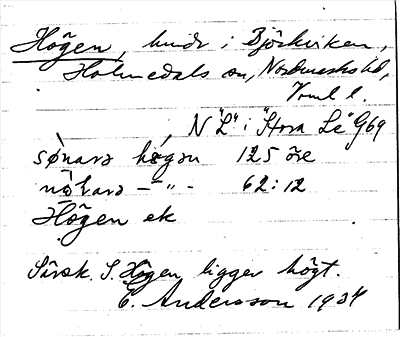 Högen, hmdr i Björkviken,
Holmedals sn, Nordmarks hd,
Vrml l.
, N "L" i "Stora Le" G69
sønarø høgən 125 öre
nøLarø — " - 62:12
Högen ek
Särsk. S. Högen ligger högt.
E. Andersson 1934